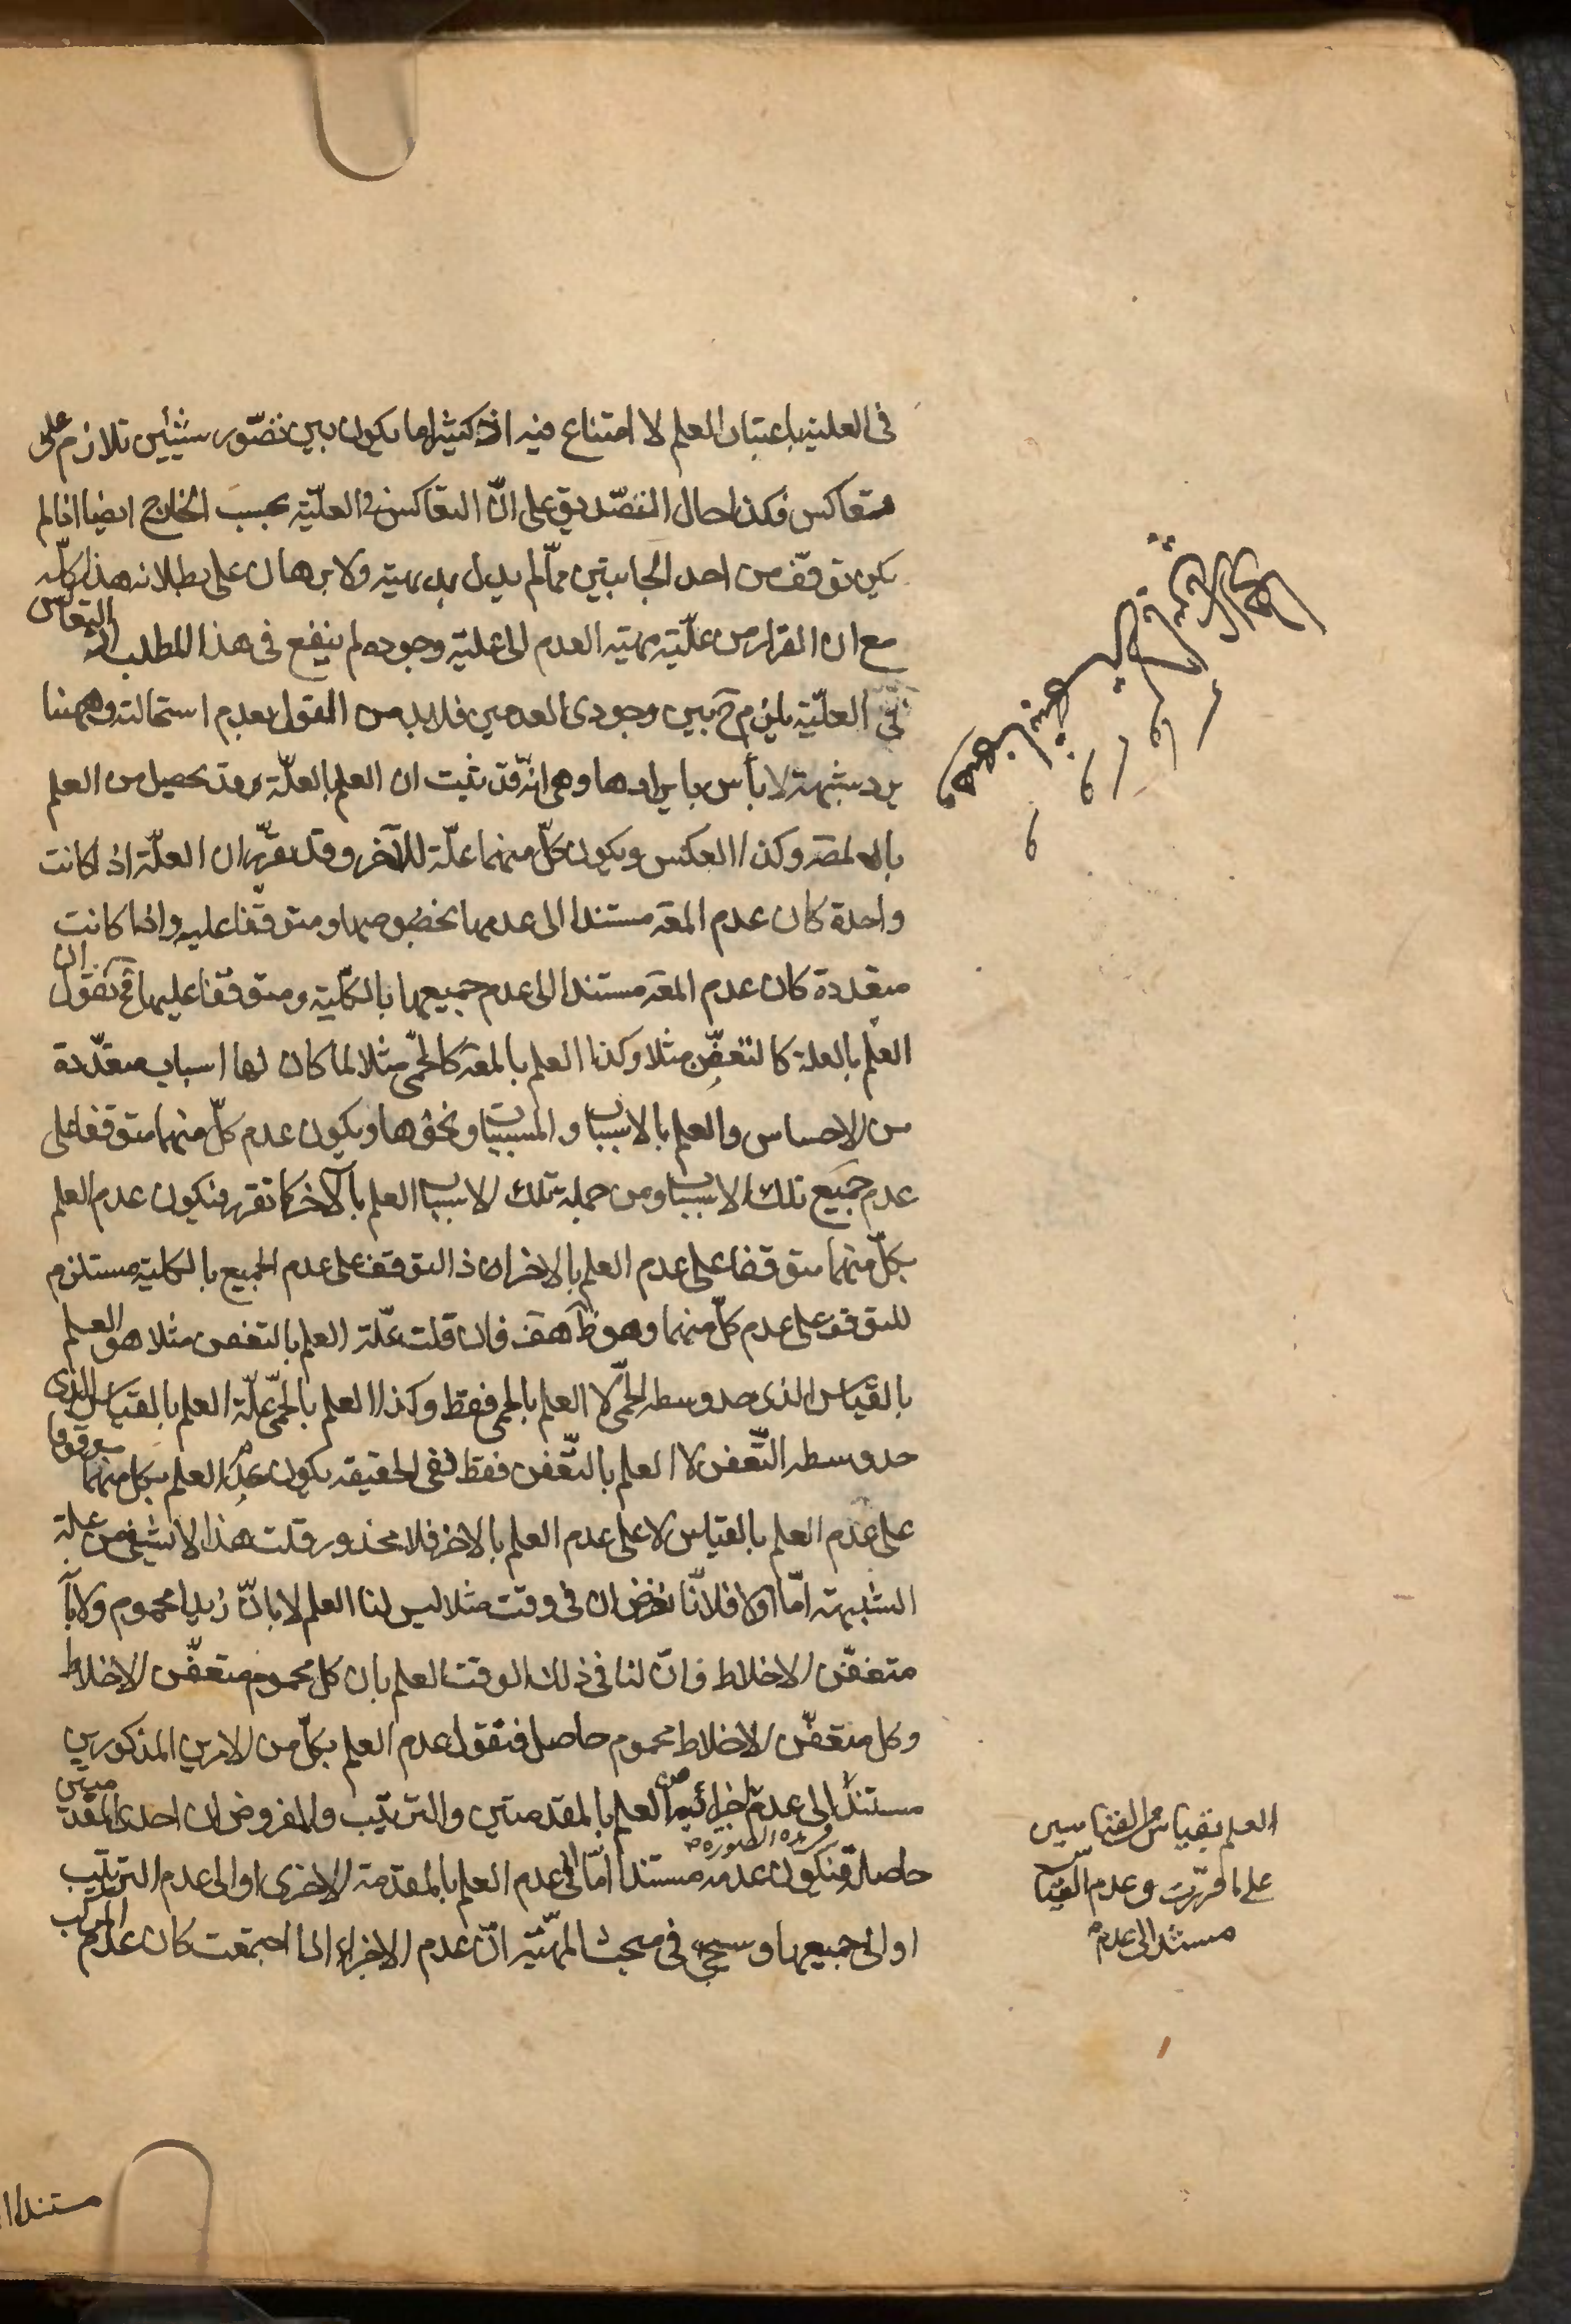 في العلية باعتبار العلم لا امتناع فيه اذ كثيرا ما يكون بين تصّور شيئين تلازم على
متعاكس فكذا حال التصّديق على انّ التعاكس في العلّية بحسب الخارج ايضا اذا لم
يكن توقّف من احد الجانبين ممّا لم يدل بديهية ولا برهان على بطلانه هذا كلّه
مع ان الفرار من علّية مهية العدم الى علية وجوده لم ينفع في هذا المطلب اذ التعاكس
في العلّية يلزم ح بين وجودى العدمين فلابد من القول بعدم استحالته وههنا
يرد شبهة لا بأس بايرادها وهى انّه قد ثبت ان العلم بالعلّة قد يحصل من العلم
بالمعلول وكذا العكس ويكون كلّ منهما علّة للآخر وقد تقرّر ان العلّة اذا كانت
واحدة كان عدم المعة مستندا الى عدمها بخصوصها ومتوقّفا عليه واذا كانت
متعددة كان عدم المعة مستندا الى عدم جميعها بالكلّية ومتوقّفا عليها فح نقول ان
العلم بالعلة كالتعفّن مثلا وكذا العلم بالمعة كالحمّى مثلا لما كان لها اسباب متعدّدة
من الاحساس والعلم بالاسباب والمسببات ونحوها ويكون عدم كلّ منهما متوقفا على
عدم جميع تلك الاسباب ومن جملة تلك الاسباب العلم بالآخر كما تقرر فيكون عدم العلم
بكلّ منهما متوقفا على عدم العلم بالاخر اذ التوقف على عدم الجميع بالكلية مستلزم
للتوقف على عدم كلّ منهما وهو ظ هف فان قلت علّة العلم بالتعفن مثلا هو العلم
بالقياس الذى حد وسطه الحمّى لا العلم بالحمى فقط وكذا العلم بالحمّى علّة العلم بالقياس الذى
حد وسطه التّعفن لا العلم بالتّعفن فقط ففى الحقيقة يكون عدم العلم بكل منهما موقوفا
على عدم العلم بالقياس لا على عدم العلم بالاخر فلا محذور قلت هذا لا يشفى من علة
الشبهة امّا اولا فلانّا نفرض ان في وقت مثلا ليس لنا العلم لا بانّ زيدا محموم ولا بانّه
متعفّن الاخلاط فانّ لنا في ذلك الوقت العلم بان كل محموم متعفّن الاخلاط
وكل متعفّن الاخلاط محموم حاصل فنقول عدم العلم بكلّ من الامرين المذكورين
مستندا الى عدم اجزائه من العلم بالمقدمتين والترتيب والمفروض ان احدى المقدمتين
حاصلة فيكون عدمه في هذه الصورة مستندا امّا الى عدم العلم بالمقدمة الاخرى او الى عدم الترتيب
او الى جميعها وسيجئ في مبحث المهيّة انّ عدم الاجزاء اذا اجتمعت كان عدم المركب
العلم بقياس من القياسين
على ما قرّرت وعدم القياس
مستند الى عدم
مستندا